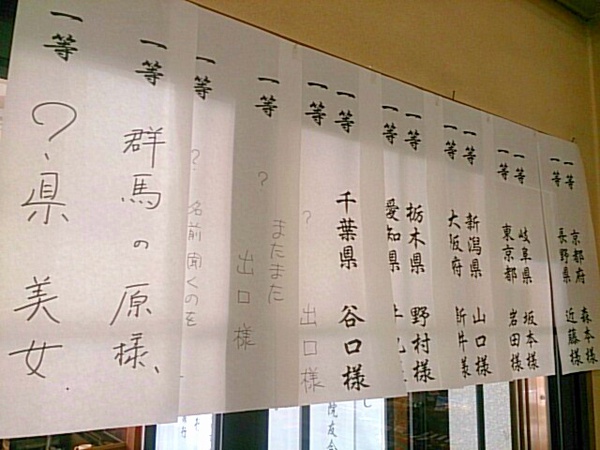 一等 京都府 森本様
一等 長野県 近藤様
一等 岐阜県 坂本様
一等 東京都 岩田様
一等 新潟県 山口様
一等 大阪府 新井様
一等 栃木県 野村様
一等 愛知県
一等 千葉県 谷口様
一等 ? 出口様
一等 ? またまた
出口様
一等 ? 名前聞くのを
一等 群馬の原様、
一等 ?、県 美女
院友会